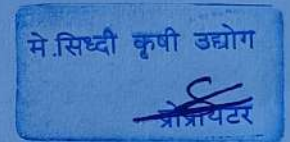 मे.सिध्दी कृषी उद्योग
प्रोप्रायटर